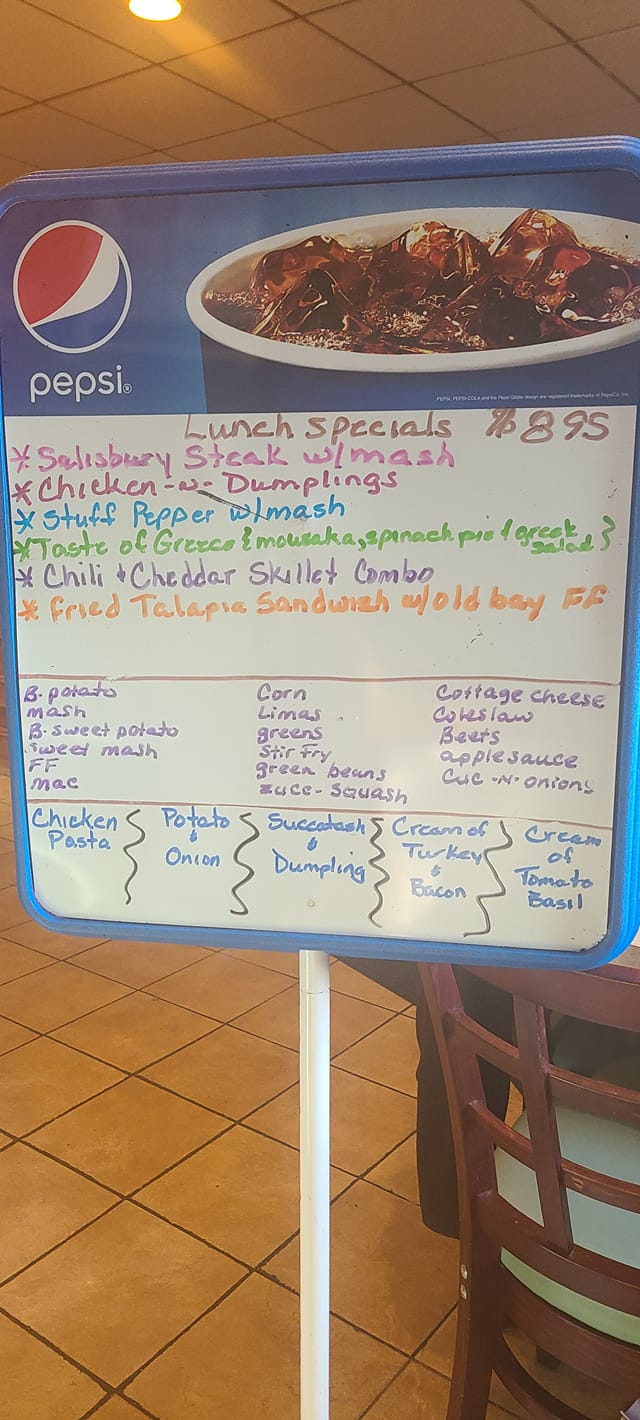 pepsi®
PEPSI, PEPSI-COLA and the Pepsi Globe design are registered trademarks of PepsiCo, Inc.
Lunch Specials $8 95
* Salisbury Steak w/mash
* Chicken -n- Dumplings
* Stuff Pepper w/mash
* Taste of Greece {mousaka, spinach pie & greek salad}
* Chili & Cheddar Skillet Combo
* Fried Talapia Sandwich w/old bay FF
B. potato
mash
B. sweet potato
sweet mash
FF
mac
Corn
Limas
greens
Stir Fry
green beans
zucc - Squash
Cottage cheese
Coleslaw
Beets
applesauce
Cuc -N- onions
Chicken
Pasta
Potato
&
Onion
Succotash
&
Dumpling
Cream of
Turkey
&
Bacon
Cream
of
Tomato
Basil